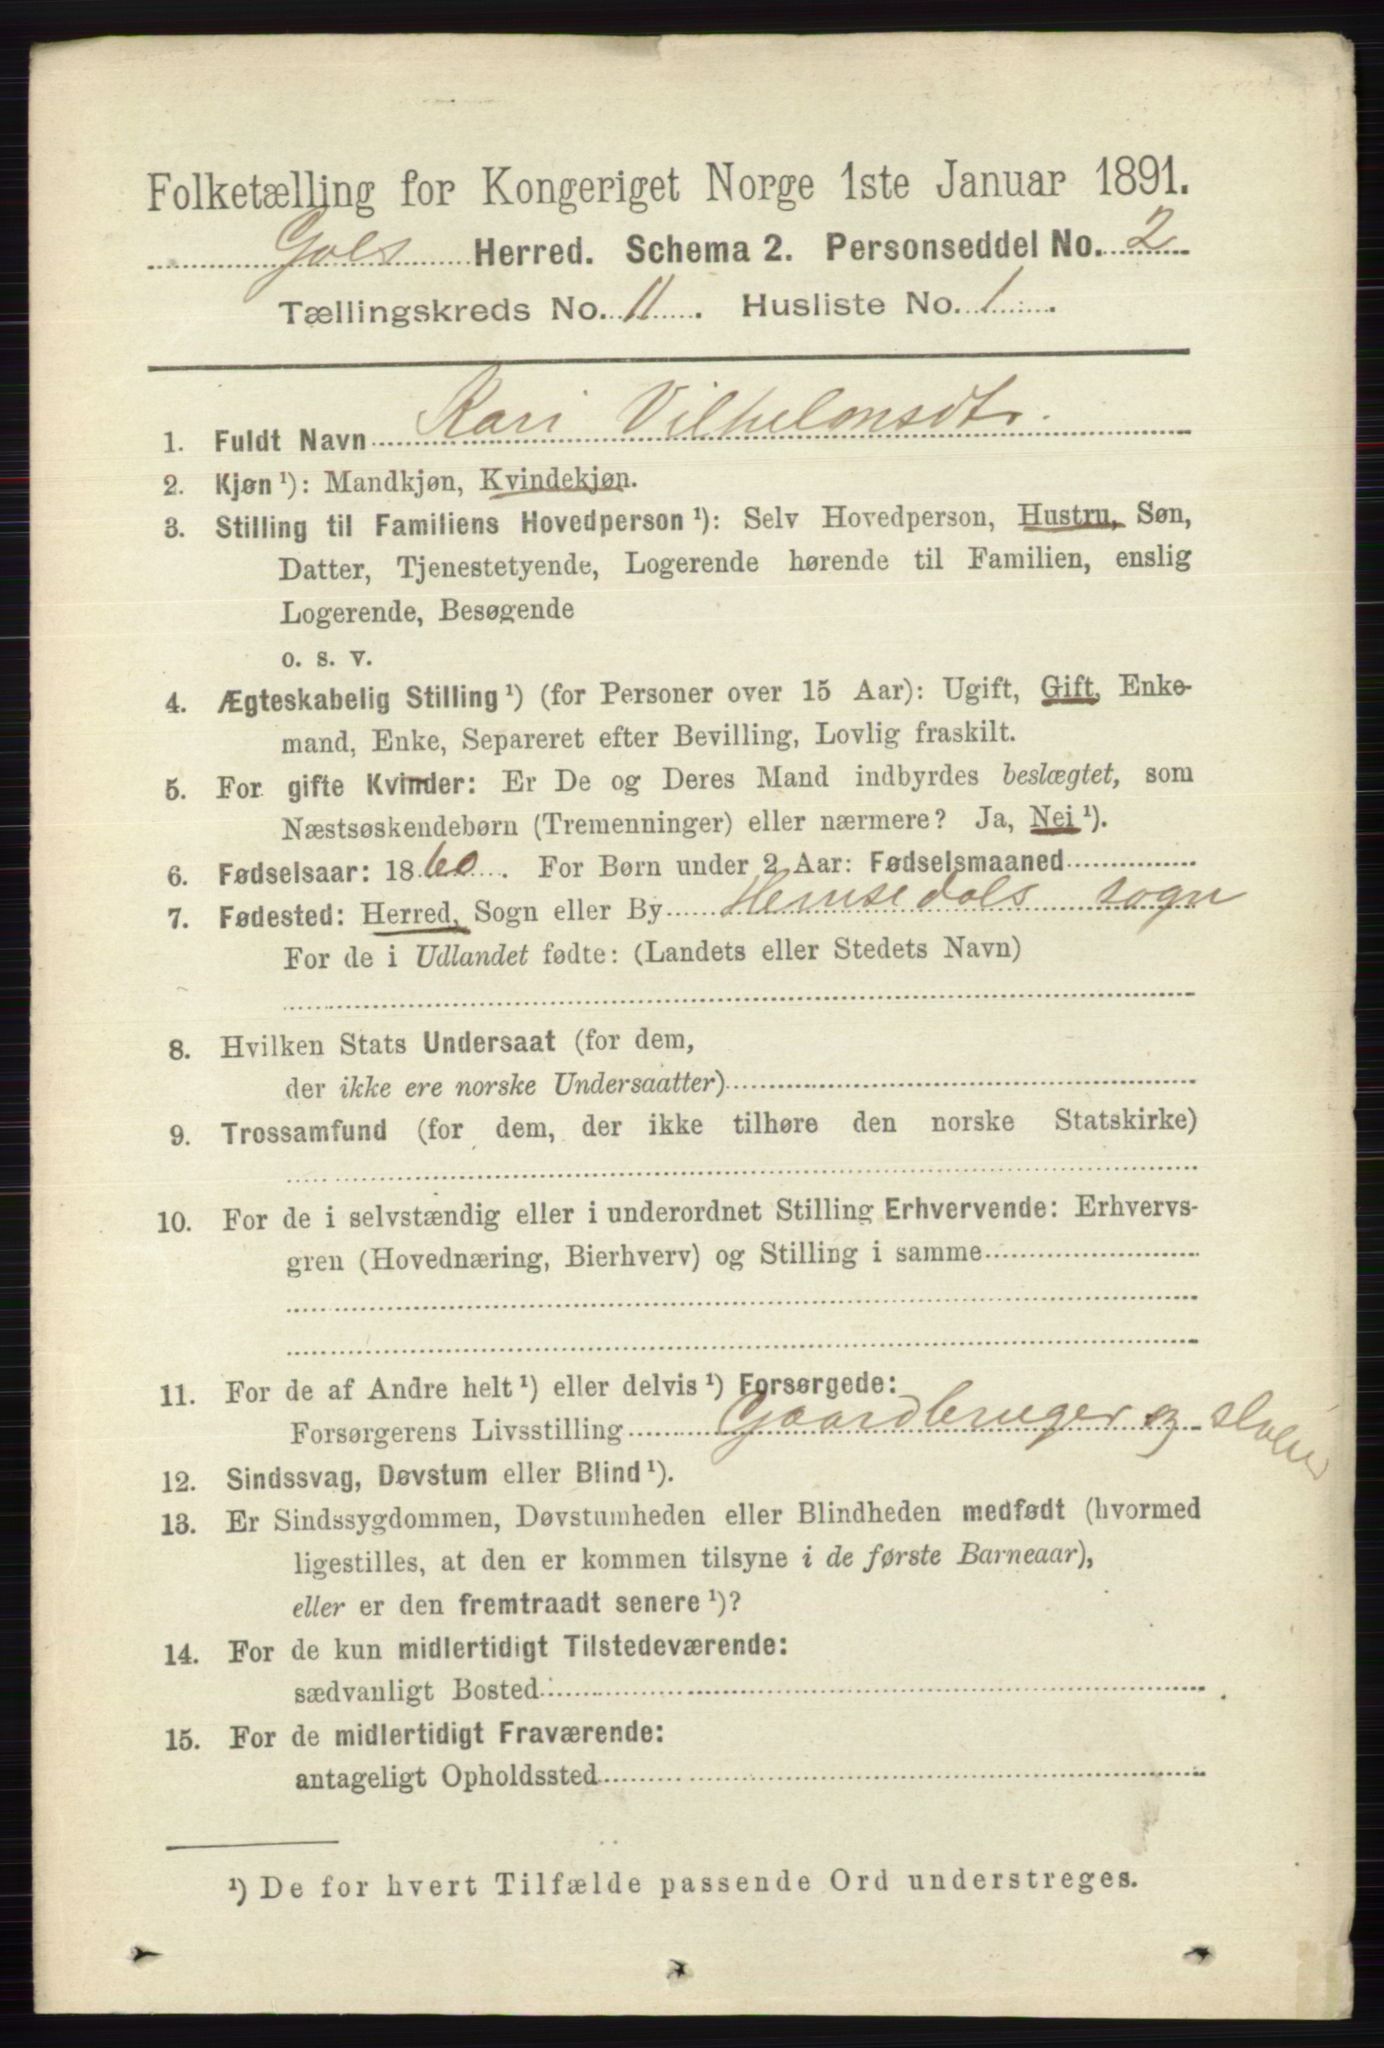 Folketælling for Kongeriget Norge 1ste Januar 1891.
Gols Herred. Schema 2. Personseddel No. 2
Tællingskreds No. 11. Husliste No. 1.
1. Fuldt Navn Kari Vilhelmsdtr.
2. Kjøn ¹): Mandkjøn, Kvindekjøn.
3. Stilling til Familiens Hovedperson ¹): Selv Hovedperson, Hustru, Søn,
Datter, Tjenestetyende, Logerende hørende til Familien, enslig
Logerende, Besøgende
o. s. v.
4. Ægteskabelig Stilling ¹) (for Personer over 15 Aar): Ugift, Gift, Enke-
mand, Enke, Separeret efter Bevilling, Lovlig fraskilt.
5. For gifte Kvinder: Er De og Deres Mand indbyrdes beslægtet, som
Næstsøskendebørn (Tremenninger) eller nærmere? Ja, Nei ¹).
6. Fødselsaar: 1860. For Børn under 2 Aar: Fødselsmaaned
7. Fødested: Herred, Sogn eller By Hemsedals sogn
For de i Udlandet fødte: (Landets eller Stedets Navn)
8. Hvilken Stats Undersaat (for dem,
der ikke ere norske Undersaatter)
9. Trossamfund (for dem, der ikke tilhøre den norske Statskirke)
10. For de i selvstændig eller i underordnet Stilling Erhvervende: Erhvervs-
gren (Hovednæring, Bierhverv) og Stilling i samme
11. For de af Andre helt ¹) eller delvis ¹) Forsørgede:
Forsørgerens Livsstilling Gaardbruger og
12. Sindssvag, Døvstum eller Blind ¹).
13. Er Sindssygdommen, Døvstumheden eller Blindheden medfødt (hvormed
ligestilles, at den er kommen tilsyne i de første Barneaar),
eller er den fremtraadt senere ¹)?
14. For de kun midlertidigt Tilstedeværende:
sædvanligt Bosted
15. For de midlertidigt Fraværende:
antageligt Opholdssted
¹) De for hvert Tilfælde passende Ord understreges.